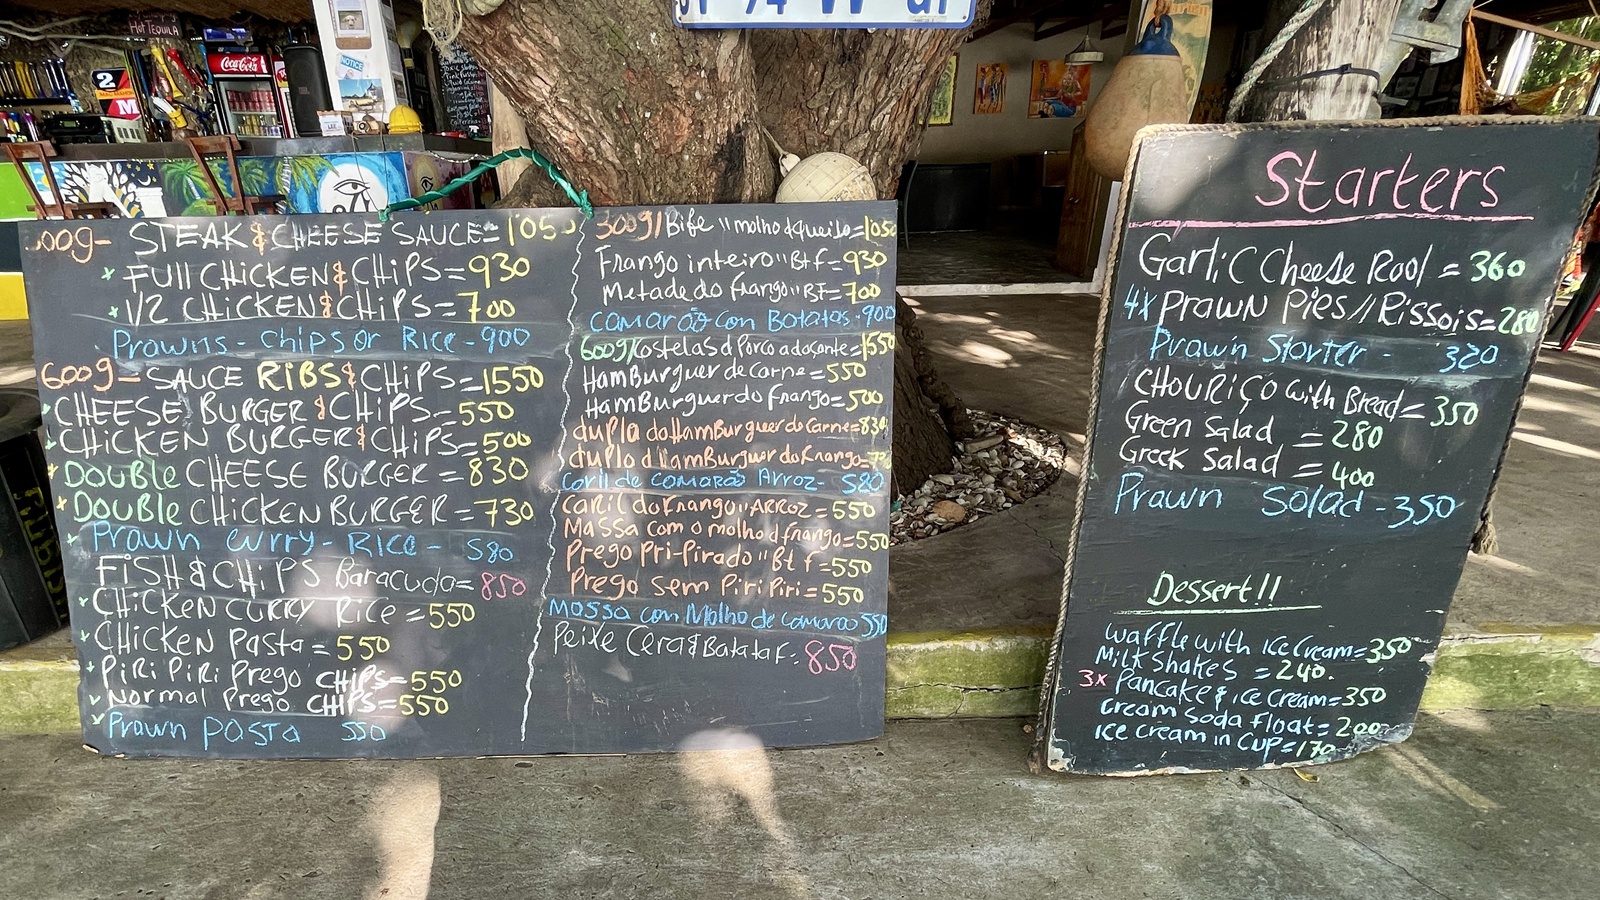 HOT TEQUILA
Coca-Cola
NOTICE
2
M
300g- STEAK & CHEESE SAUCE=1050
FULL CHICKEN & CHIPS=930
1/2 CHICKEN & CHIPS=700
Prawns - chips or Rice - 900
600g- SAUCE RIBS & CHIPS=1550
CHEESE BURGER & CHIPS=550
CHICKEN BURGER & CHIPS=500
DOUBLE CHEESE BURGER=830
DOUBLE CHICKEN BURGER=730
Prawn curry - Rice - 580
FISH & CHIPS Baracuda=850
CHICKEN CURRY RICE=550
CHICKEN Pasta=550
PiRi PiRi Prego CHIPS=550
Normal Prego CHIPS=550
Prawn pasta 550
300g/Bife "molho d queijo=1050
Frango inteiro" Btf=930
Metade do frango" BF=700
Camarão con Batatas-900
600g/Costelas d porco adoçante=1550
HamBurguer de carne=550
HamBurguer do frango=500
duplo do HamBurguer do carne=830
duplo d HamBurguer do frango=
Caril de camarão Arroz- 580
caril do frango" ARROZ=550
Massa com o molho d frango=550
Prego Pri-Pirado" Btf=550
Prego sem Piri Piri=550
Massa com Molho de camarao 550
Peixe Cera & Batata F. 850
Starters
Garlic Cheese Rool=360
4x Prawn Pies//Rissois=280
Prawn Starter - 320
CHOURIÇO with Bread=350
Green Salad =280
Greek Salad =400
Prawn Salad -350
Dessert!!
waffle with ice cream=350
Milk Shakes =240.
3x Pancake & ice cream=350
cream Soda float=200
ice cream in cup=170